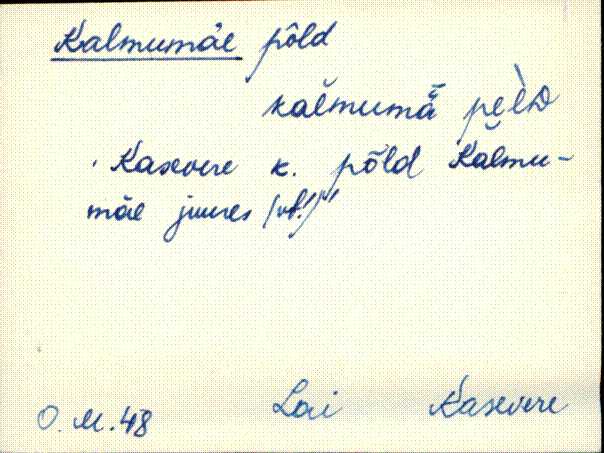 Kalmumäe põld
kal̆mumä̆ pe̮l̀D
Kasevere k. põld Kalmu-
mäe juures (vt!)"
O. M. 48 Lai Kasevere